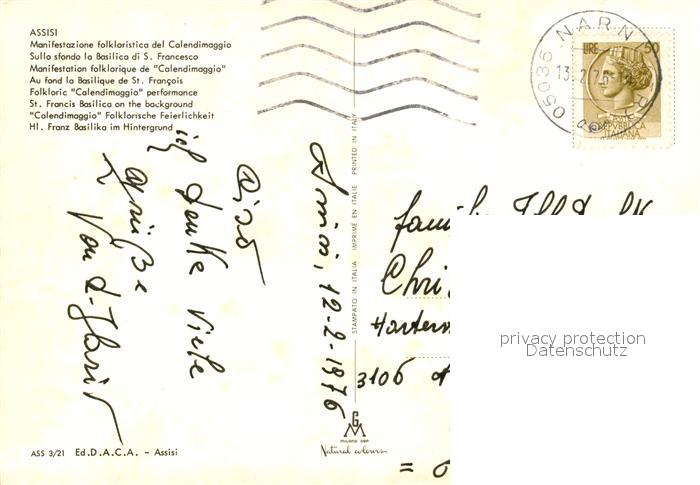 ASSISI
Manifestazione folkloristica del Calendimaggio
Sullo sfondo la Basilica di S. Francesco
Manifestation folklorique de "Calendimaggio"
Au fond la Basilique de St. François
Folkloric "Calendimaggio" performance
St. Francis Basilica on the background
"Calendimaggio" Folklorische Feierlichkeit
Hl. Franz Basilika im Hintergrund
05035 NARNI
13.2.76
LIRE 50
REPUBBLICA
ITALIANA
Assisi, 12-2-1976
ich danke viele
grüße
von
STAMPATO IN ITALIA IMPRIMÉ EN ITALIE PRINTED IN ITALY
Chri
3106
privacy protection
Datenschutz
GM
MILANO DEP.
Natural colours
ASS 3/21 Ed.D.A.C.A. - Assisi